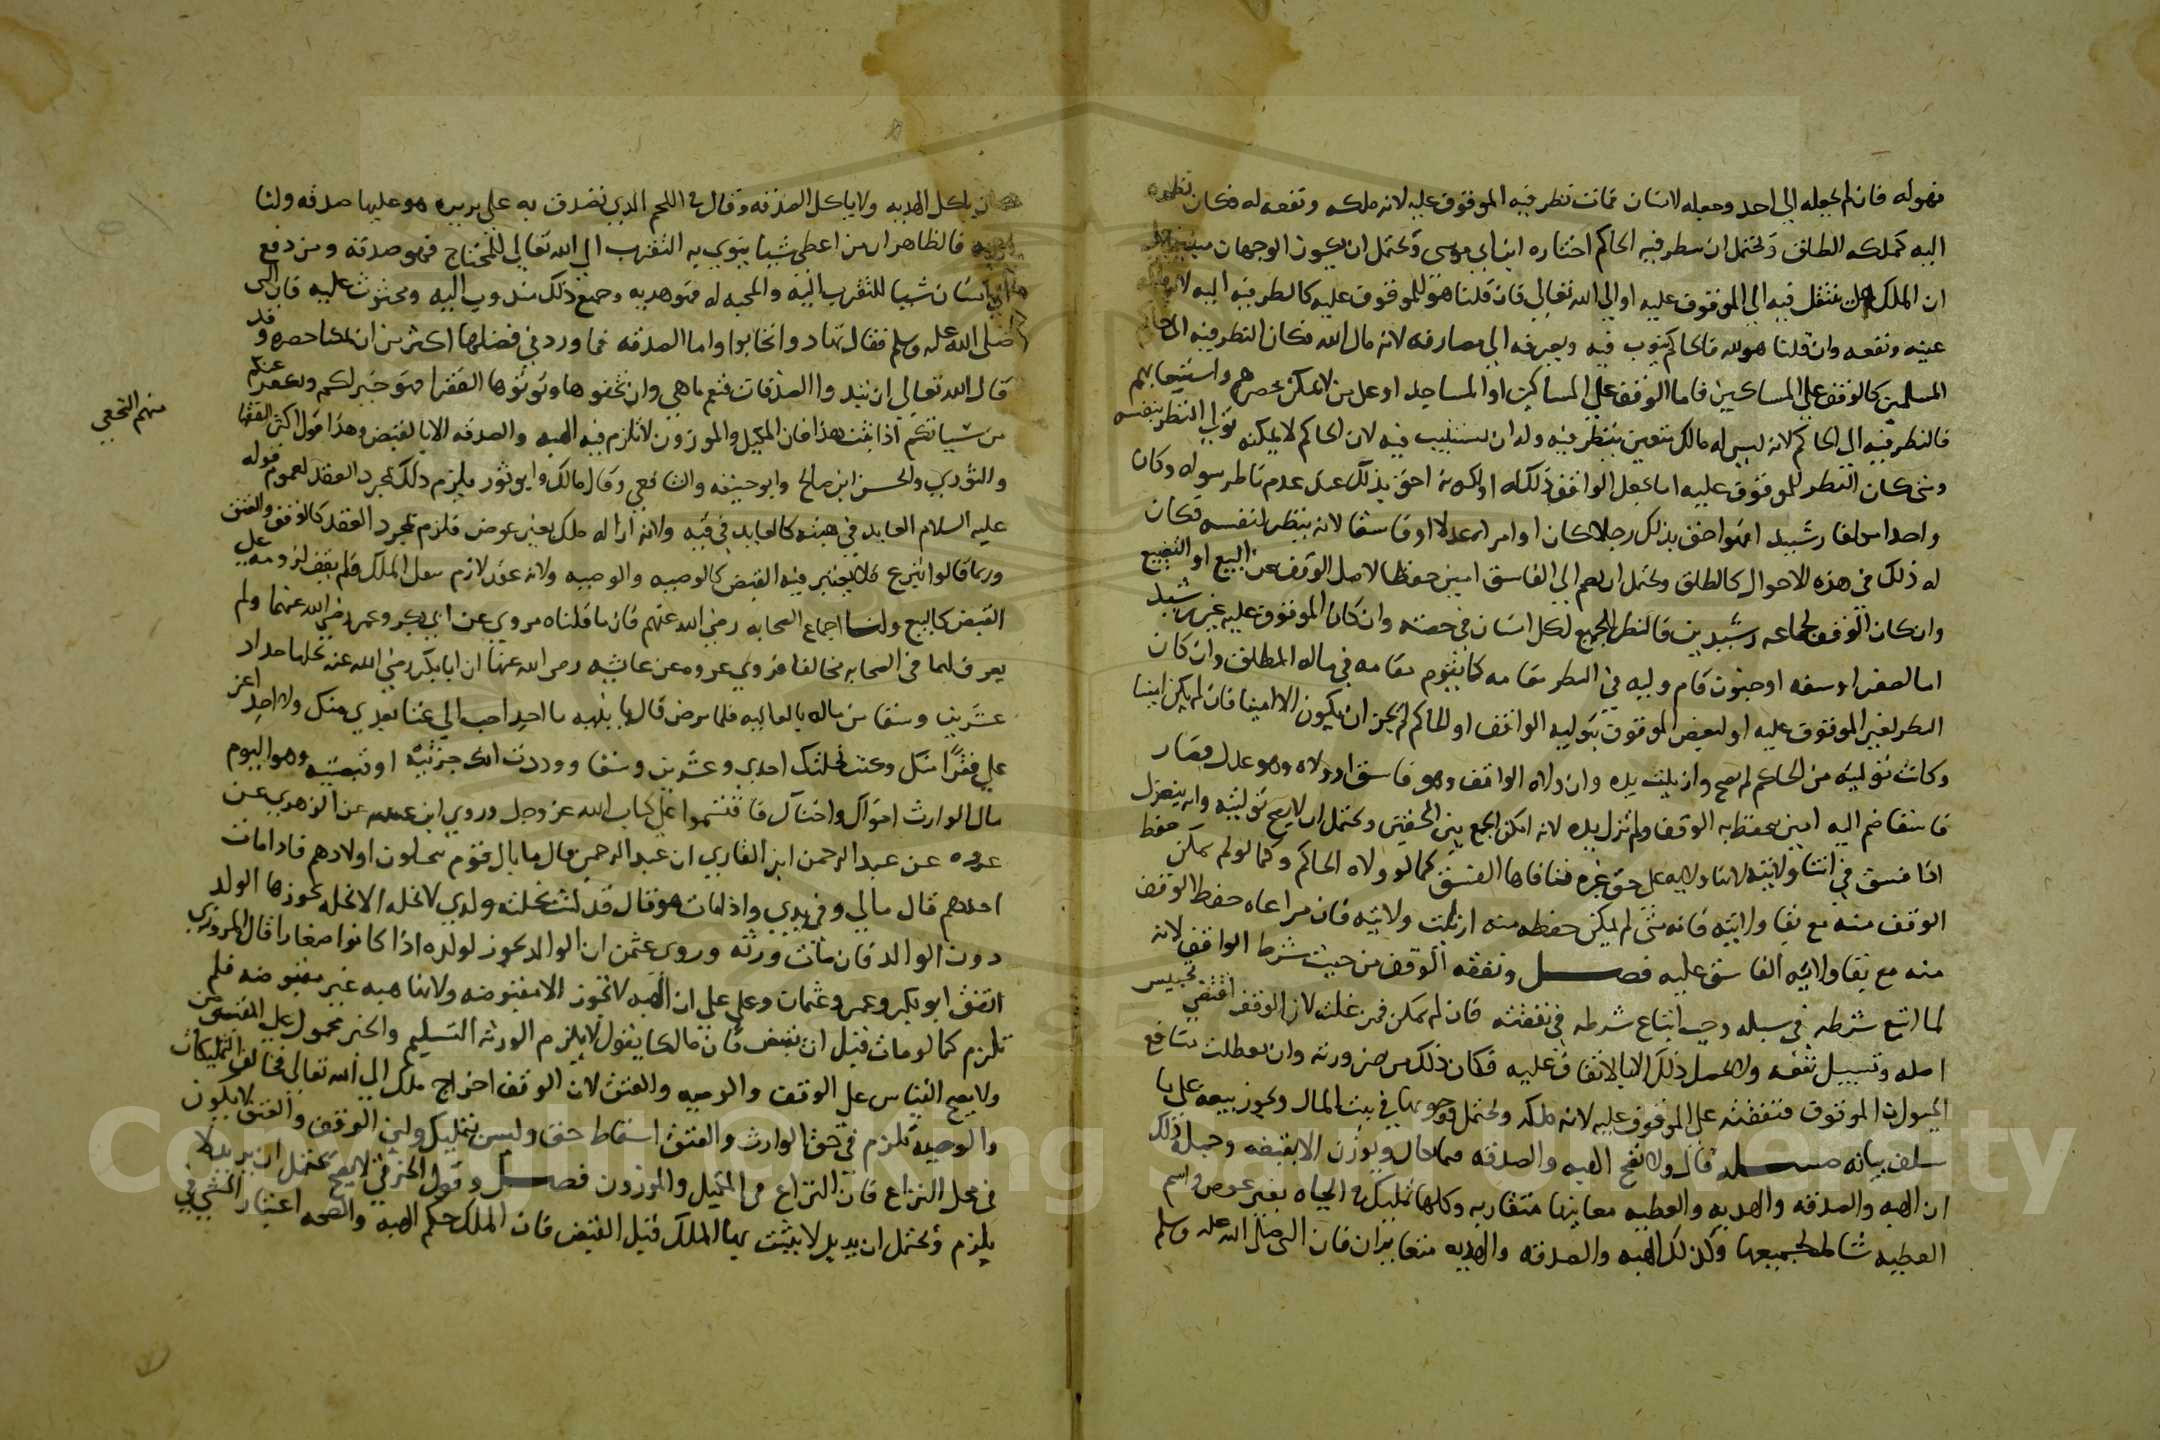 فهوله فان لم يجعله الي احد وجعله لانسان فمات نظر فيه الموقوف عليه لانه ملكه ونفعه له فكان نظره
اليه كملكه المطلق ويحتمل ان ينظر فيه الحاكم اختاره ابن ابي موسى ويحتمل ان يكون الوجهان مبنيين علي
ان الملك هل ينتقل فيه الي الموقوف عليه او الي الله تعالي فان قلنا هو للموقوف عليه كان النظر فيه اليه لانه ملكه
عينه ونفعه وان قلنا هو لله فالحاكم ينوب فيه ويصرفه الي مصارفه لانه مال الله فكان النظر فيه الي حاكم
المسلمين كالوقف علي المساكين فاما الوقف علي المساكين او المساجد او علي من لا يمكن حصرهم واستيعابهم
فالنظر فيه الي الحاكم لانه ليس له مالك متعين ينظر فيه وله ان يستنيب فيه لان الحاكم لا يمكنه تولي النظر بنفسه
ومتى كان النظر للموقوف عليه اما بجعل الواقف ذلك له او لكونه احق بذلك عند عدم ناظر سواه وكان
واحدا مكلفا رشيدا فهو احق بذلك رجلا كان او امراه عدلا او فاسقا لانه ينظر لنفسه فكان
له ذلك في هذه الاحوال كالطلق ويحتمل ان يضم الي الفاسق امين حفظا لاصل الوقف عن البيع او التضييع
وان كان الوقف لجماعه رشيدين فالنظر للجميع لكل انسان في حصته وان كان الموقوف عليه غير رشيد
اما لصغر او سفه او جنون قام وليه في النظر مقامه كما يقوم مقامه في ماله المطلق وان كان
النظر لغير الموقوف عليه او لبعض الموقوف بتوليه الواقف او الحاكم لم يجز ان يكون الا امينا فان لم يكن امينا
وكانت توليته من الحاكم لم تصح وازيلت يده وان ولاه الواقف وهو فاسق او ولاه وهو عدل فصار
فاسقا ضم اليه امين يحفظ به الوقف ولم تزل يده لانه امكن الجمع بين الحقين ويحتمل ان لا يصح توليته وانه ينعزل
اذا فسق في اثنا ولايته لانها ولايه علي حق غيره فنافاها الفسق كما لو ولاه الحاكم وكما لو لم يمكن حفظ
الوقف منه مع بقا ولايته فانه متى لم يمكن حفظه منه ازيلت ولايته فان مراعاه حفظ الوقف
منه مع بقا ولايه الفاسق عليه فصل ونفقه الوقف من حيث شرط الواقف لانه
لما اتبع شرطه في سبله وجب اتباع شرطه في نفقته فان لم يمكن فمن غلته لان الوقف اقتضي تحبيس
اصله وتسبيل نفعه ولا يحصل ذلك الا بالانفاق عليه فكان ذلك من ضرورته وان تعطلت منافع
الحيوان الموقوف فنفقته علي الموقوف عليه لانه ملكه ويحتمل وجوبها في بيت المال ويجوز بيعه علي ما
سلف بيانه مسله قال ولا تصح الهبه والصدقه فيما يكال ويوزن الا بقبضه وجمله ذلك
ان الهبه والصدقه والهديه والعطيه معانيها متقاربه وكلها تمليك في الحياه بغير عوض واسم
العطيه شامل لجميعها وكذلك الهبه والصدقه والهديه متغايران فان النبي صلى الله عليه وسلم
كان ياكل الهديه ولا ياكل الصدقه وقال في اللحم الذي تصدق به علي بريره هو عليها صدقه ولنا
هديه فالظاهر ان من اعطي شيا ينوي به التقرب الي الله تعالي للمحتاج فهو صدقه ومن دفع
الي انسان شيا للتقرب اليه والمحبه له فهو هديه وجميع ذلك مندوب اليه ومحثوث عليه فان النبي
صلى الله عليه وسلم فقال تهادوا تحابوا واما الصدقه فما ورد في فضلها اكثر من ان يمكننا حصره وقد
قال الله تعالي ان تبدوا الصدقات فنعم ما هي وان تخفوها وتوتوها الفقرا فهو خير لكم ويكفر عنكم
من سياتكم اذا ثبت هذا فان المكيل والموزون لا تلزم فيه الهبه والصدقه الا بالقبض وهذا قول اكثر الفقها
منهم النخعي
والثوري والحسن ابن صالح وابو حنيفه والشافعي وقال مالك وابو ثور يلزم ذلك بمجرد العقد لعموم قوله
عليه السلام العايد في هبته كالعايد في قيه ولانه ازاله ملك بغير عوض فلزم بمجرد العقد كالوقف والعتق
وربما قالوا تبرع فلا يعتبر فيه القبض كالوصيه والوصيه ولانه عقد لازم ينقل الملك فلم يقف لزومه علي
القبض كالبيع ولنا اجماع الصحابه رضي الله عنهم فان ما قلناه مروي عن ابي بكر وعمر رضي الله عنهما ولم
يعرف لهما في الصحابه مخالفا فروي عروه عن عايشه رضي الله عنها ان ابا بكر رضي الله عنه نحلها جداد
عشرين وسقا من ماله بالعاليه فلما مرض قال يا بنيه ما احد احب الي غنا بعدي منك ولا احد اعز
علي فقرا منك وكنت نحلتك احدي وعشرين وسقا ووددت انك جزتيه او قبضتيه وهو اليوم
مال الوارث اخوال واختاك فاقتسموا علي كتاب الله عز وجل وروي ابن عيينه عن الزهري عن
عروه عن عبد الرحمن ابن القاري ان عبد الرحمن قال ما بال قوم ينحلون اولادهم فاذا مات
احدهم قال مالي وفي يدي واذا مات هو قال قد كنت نحلته ولدي لا نحله الا نحله يحوزها الولد
دون الوالد فان مات ورثه وروي عثمن ان الوالد يحوز لولده اذا كانوا صغارا قال المروذي
اتفق ابو بكر وعمر وعثمان وعلي علي ان الهبه لا تجوز الا مقبوضه ولانها هبه غير مقبوضه فلم
تلزم كما لو مات قبل ان تقبض فان مالكا يقول لا يلزم الورثه التسليم والخبر محمول علي المقبوض
ولا يصح القياس علي الوقف والوصيه والعتق لان الوقف اخراج ملك الي الله تعالي فخالف التمليكات
والوصيه تلزم في حق الوارث والعتق اسقاط حق وليس بتمليك ولان الوقف والعتق لا يكون
في محل النزاع فان النزاع في المكيل والموزون فصل وقول الخرقي لا يصح يحتمل ان يريد لا
يلزم ويحتمل ان يريد لا يثبت بها الملك قبل القبض فان الملك حكم الهبه والصحه اعتبار الشي في
Copyright © King Saud University